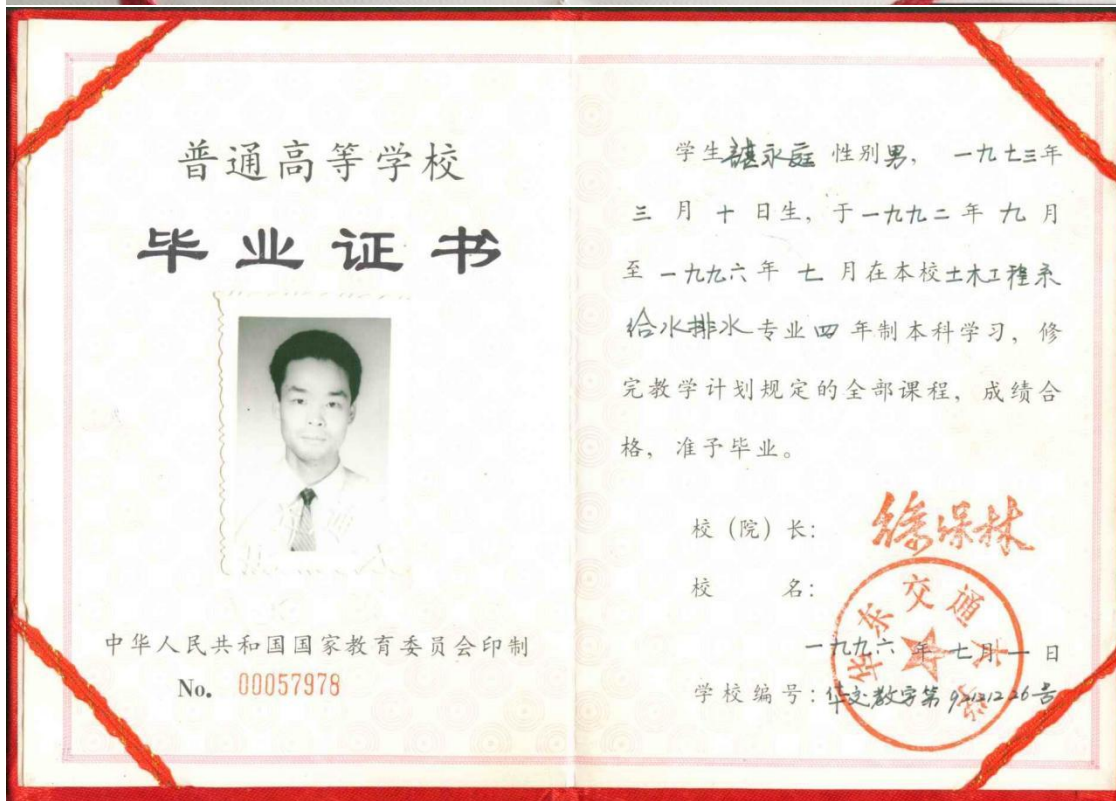 普通高等学校
毕业证书
中华人民共和国国家教育委员会印制
No. 00057978
学生谌永庭 性别男，一九七三年
三月十日生，于一九九二年九月
至一九九六年七月在本校土木工程系
给水排水专业四年制本科学习，修
完教学计划规定的全部课程，成绩合
格，准予毕业。
校（院）长：徐保林
校名：
华东交通大学
一九九六年七月一日
学校编号：华交教字第